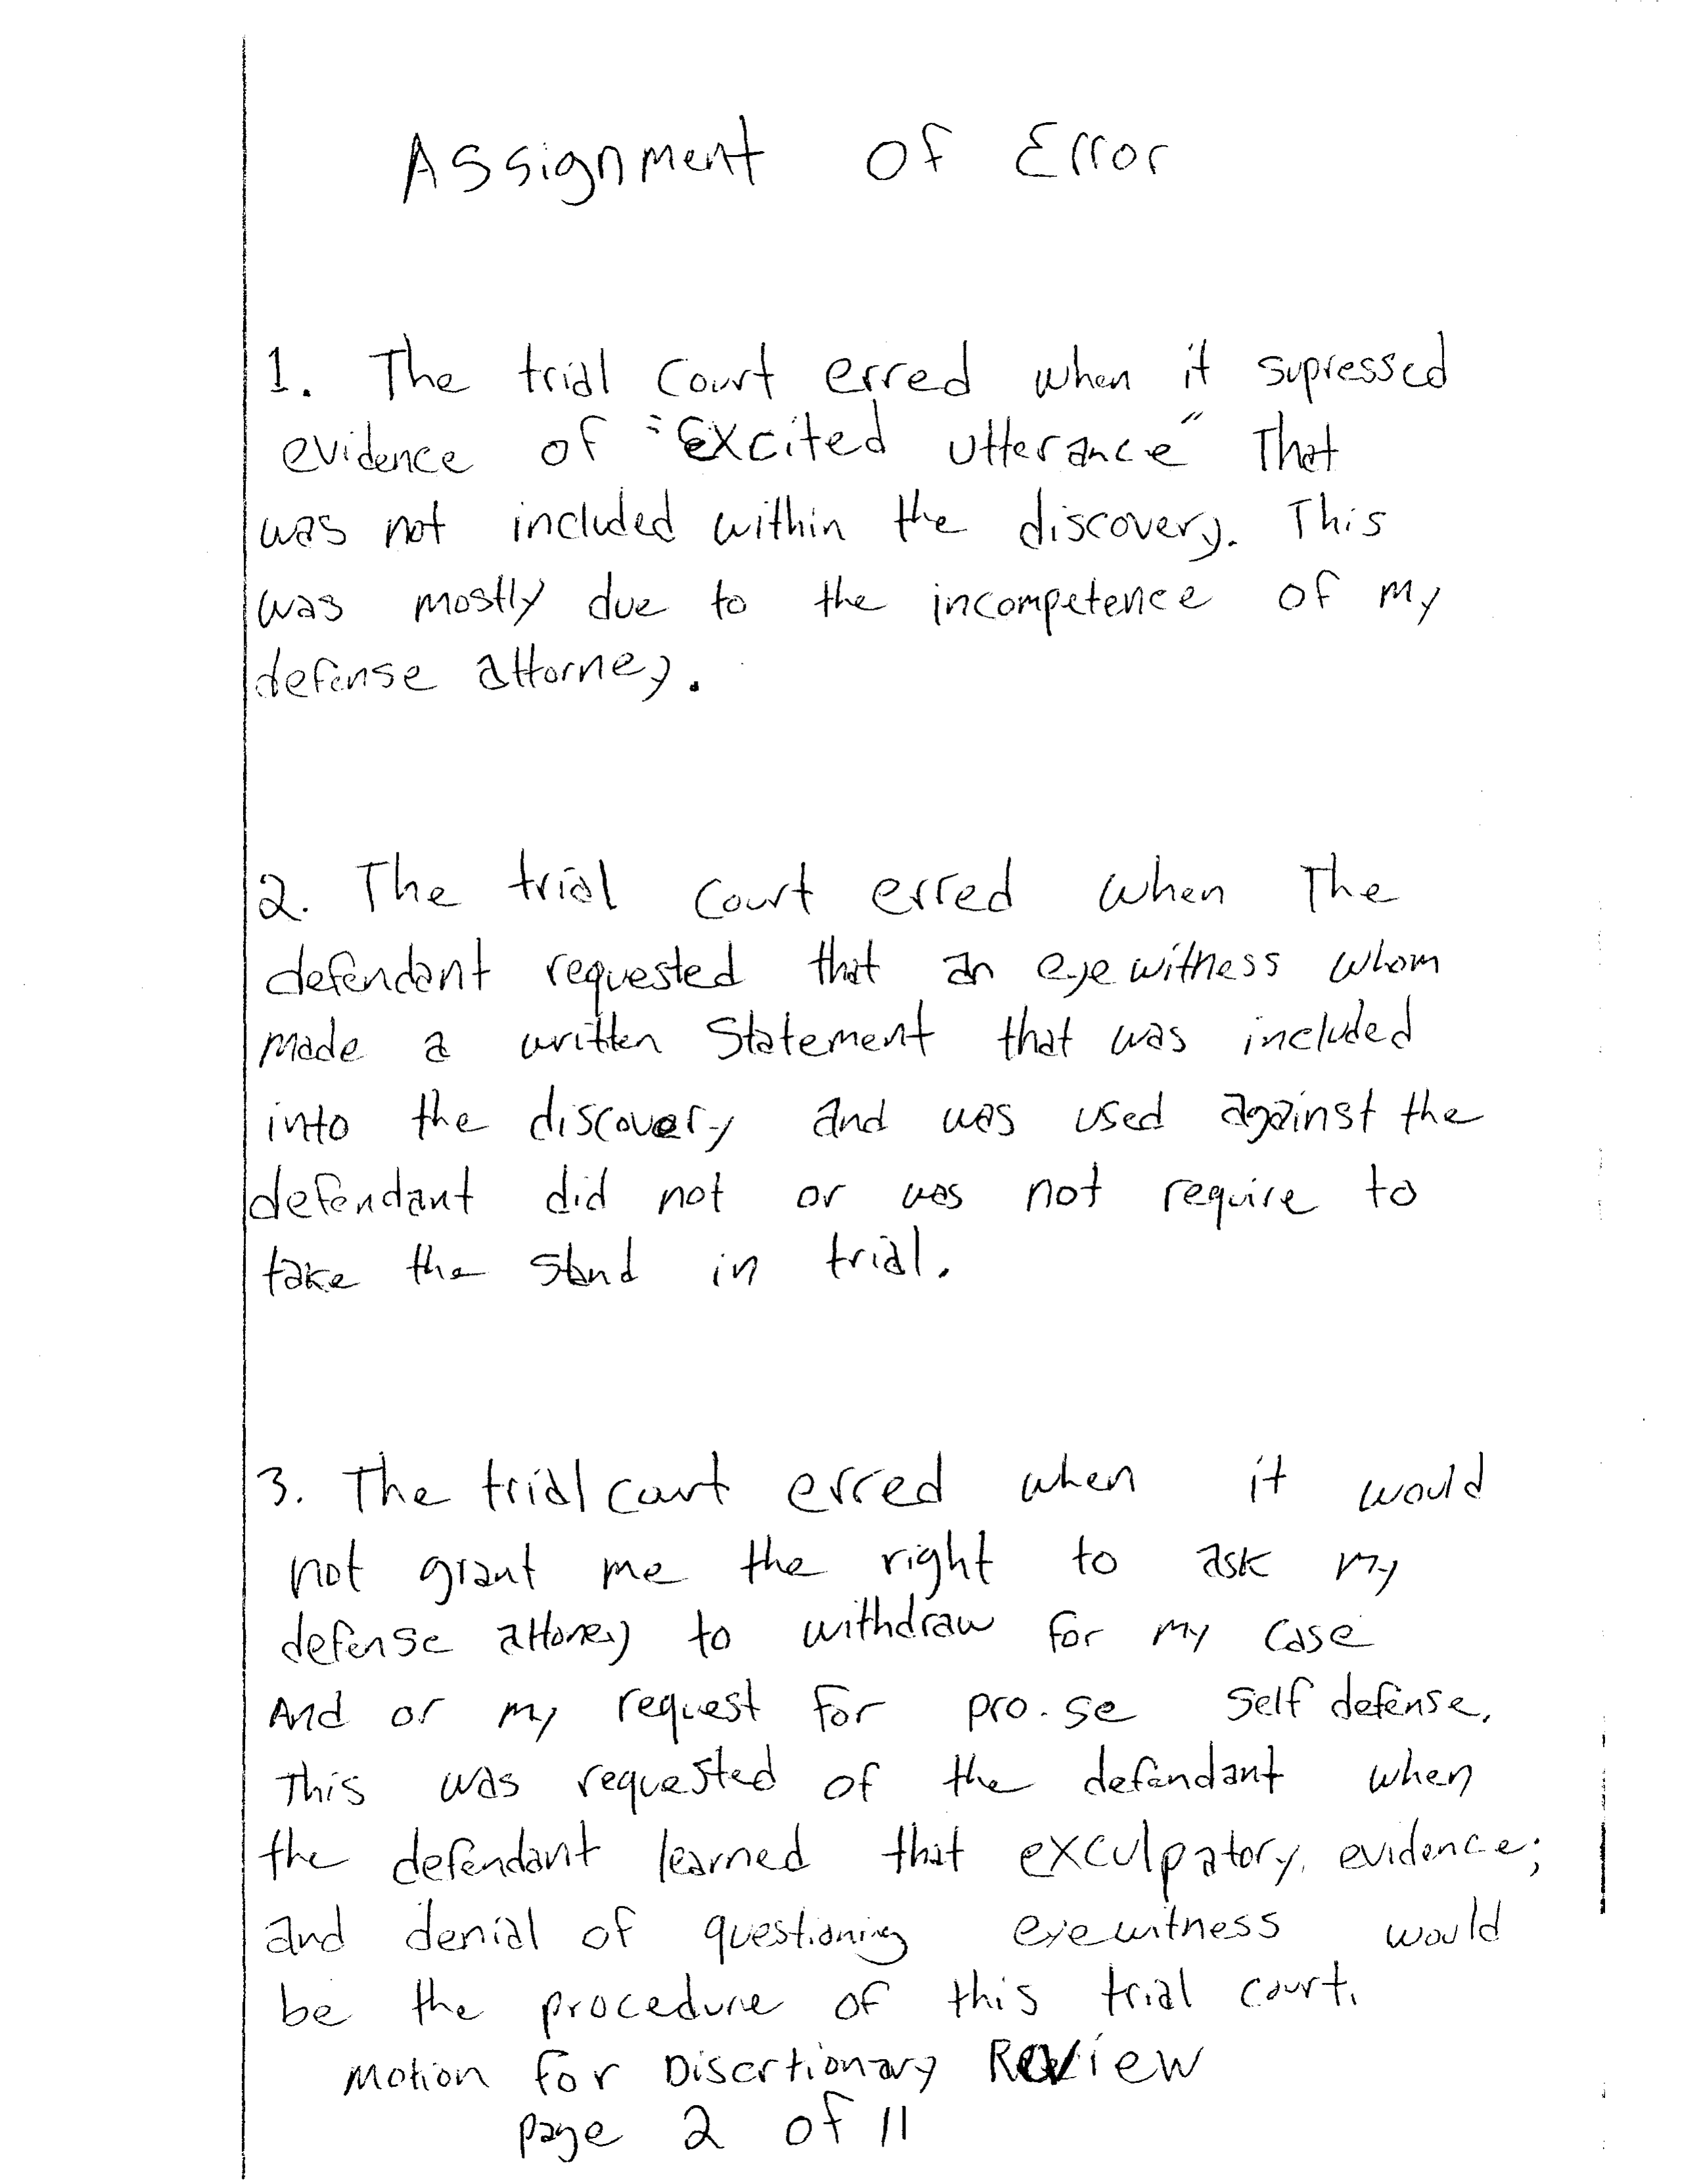 Assignment of Error
1. The trial court erred when it supressed
evidence of "Excited utterance" That
was not included within the discovery. This
was mostly due to the incompetence of my
defense attorney.
2. The trial court erred when The
defendant requested that an eyewitness whom
made a written Statement that was included
into the discovery and was used against the
defendant did not or was not require to
take the stand in trial.
3. The trial court erred when it would
not grant me the right to ask my
defense attorney to withdraw for my case
And or my request for pro-se self defense.
This was requested of the defendant when
the defendant learned that exculpatory evidence;
and denial of questioning eyewitness would
be the procedure of this trial court.
Motion for Discrtionary Review
page 2 of 11